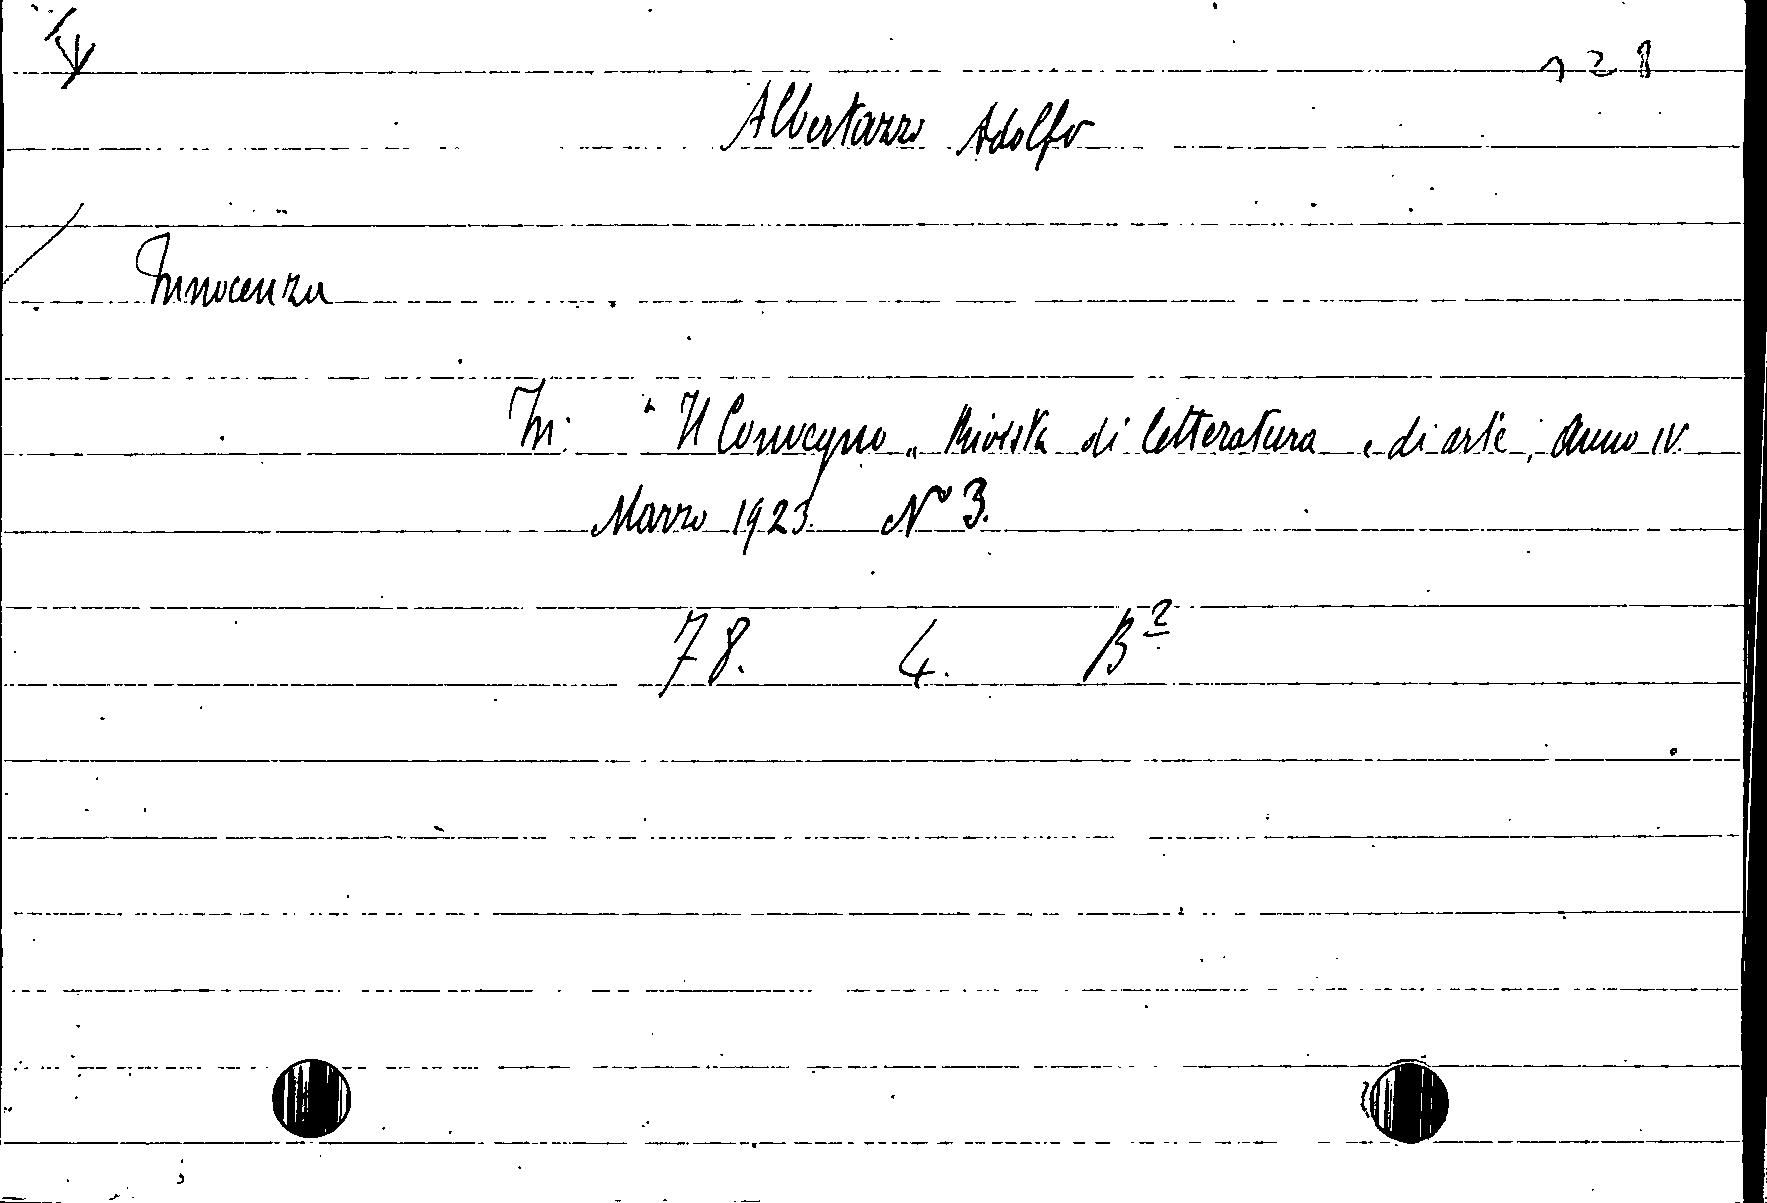 128
Albertazzi Adolfo
Innocenza
In: "Il Convegno„ Rivista di letteratura e di arte, Anno IV.
Marzo 1923. N° 3.
78. 4. B²